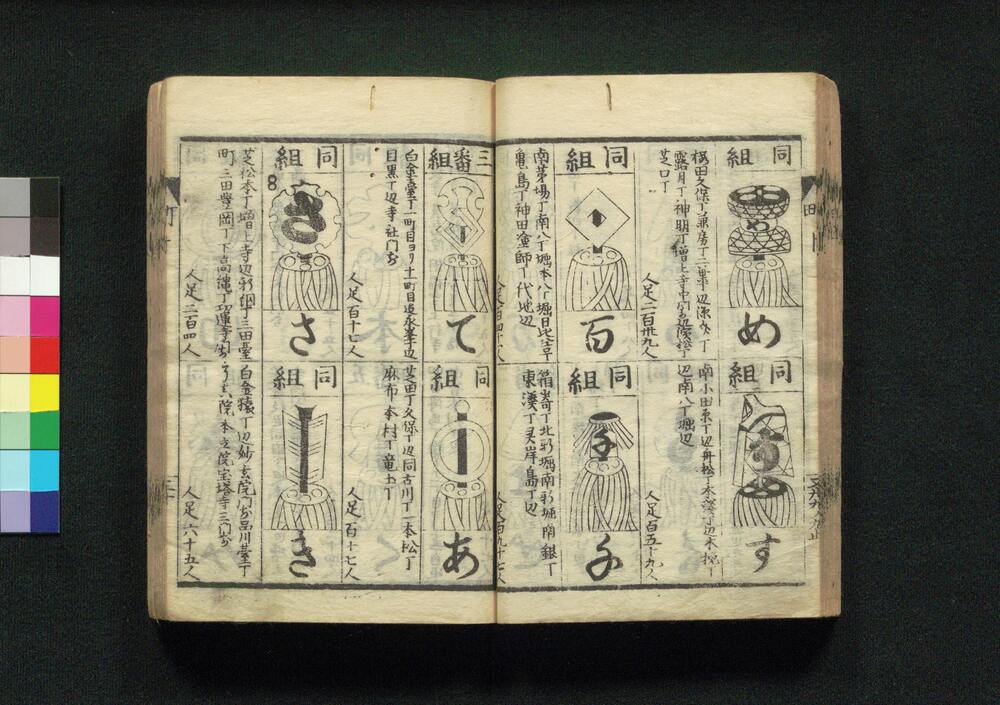 同組
め
桜田久保丁兼房丁二葉丁辺源助丁
露月丁神明丁増上寺中門前辺濱松丁
芝口丁
人足二百卅九人
同組
す
南小田原丁辺舟松丁本湊丁辺木挽丁
辺南八丁堀辺
人足百五十九人
同組
百
南茅場丁南八丁堀本八丁堀日比谷丁
亀島丁神田塗師丁代地辺
同組
千
箱崎丁北新堀南新堀南銀丁
東湊丁灵岸島丁辺
三番組
て
白金臺丁一町目ヨリ十一町目迠永峯丁辺
目黒丁辺寺社門前
人足百十七人
同組
あ
芝田丁久保丁辺同古川丁一本松丁
麻布本村丁竜土丁
人足百十七人
同組
さ
芝松本丁増上寺辺新網丁三田臺
町三田豊岡丁下高縄丁功運寺前
人足二百四人
同組
き
白金猿丁辺妙玄院門前品川臺丁
人足六十五人